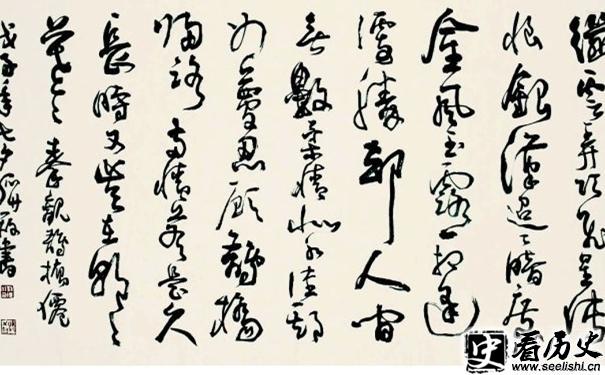 纖雲弄巧飛星傳
恨銀漢迢〻暗度
金風玉露一相逢
便勝卻人間
無數柔情似水佳期
如夢忍顧鵲橋
歸路兩情若是久
長時又豈在朝〻
暮〻秦觀鵲橋仙
戊子年七夕書
史看历史
www.seelishi.cn